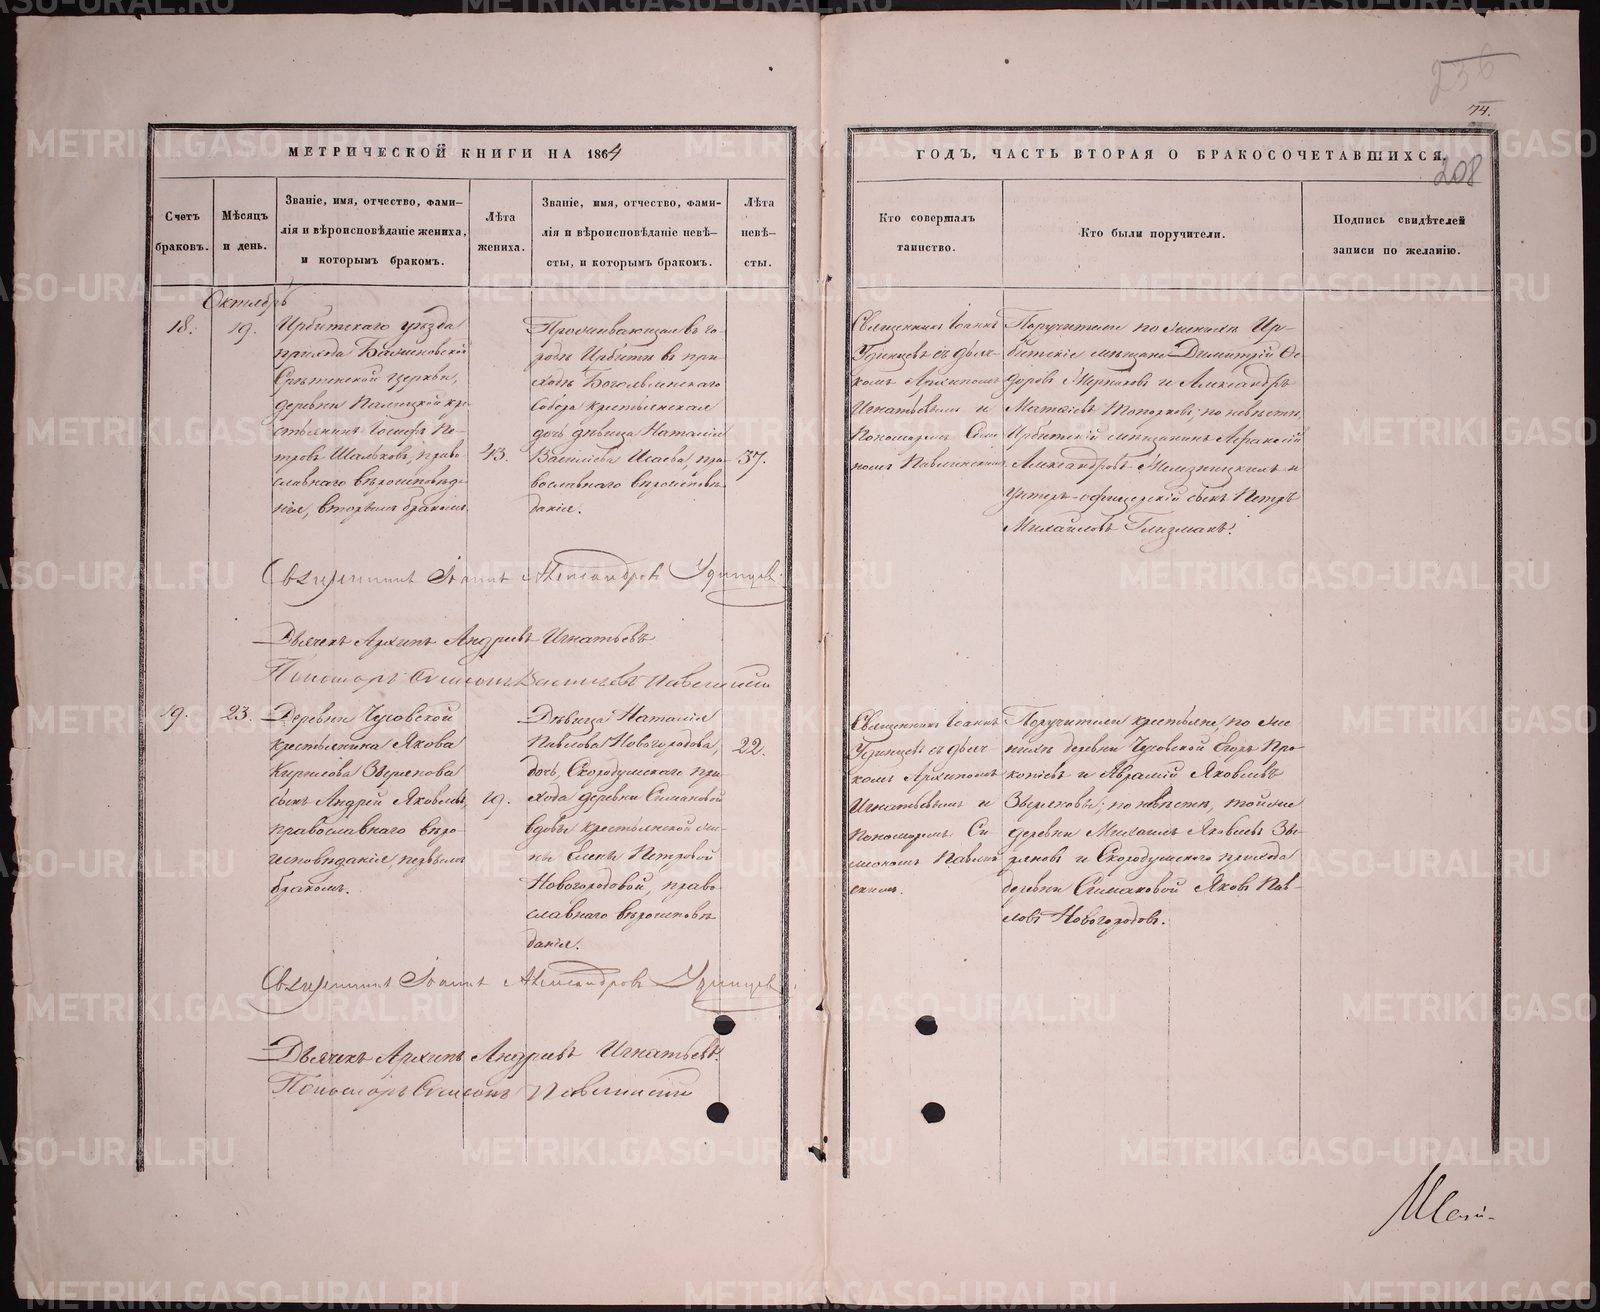 236
74.
208
МЕТРИЧЕСКОЙ КНИГИ НА 1864
ГОДЪ, ЧАСТЬ ВТОРАЯ О БРАКОСОЧЕТАВШИХСЯ.
Счетъ
браковъ.
Мѣсяцъ
и день.
Званіе, имя, отчество, фами-
лія и вѣроисповѣданіе жениха,
и которымъ бракомъ.
Лѣта
жениха.
Званіе, имя, отчество, фами-
лія и вѣроисповѣданіе невѣ-
сты, и которымъ бракомъ.
Лѣта
невѣ-
сты.
Кто совершалъ
таинство.
Кто были поручители.
Подпись свидѣтелей
записи по желанію.
Октябрь
18.
19.
Ирбитскаго уѣзда
прихода
Срѣтенской церкви,
деревни кре-
стьянинъ Іосифъ Пе-
тровъ право-
славнаго вѣроисповѣда-
нія, вторымъ бракомъ.
43.
Проживающая въ го-
родѣ Ирбити въ при-
ходѣ Богоявленскаго
Собора крестьянская
дочь дѣвица Наталія
Васильева Исаева, пра-
вославнаго вѣроисповѣ-
данія.
37.
Священникъ Іоаннъ
Удинцевъ съ дьяч-
комъ Архипомъ
Игнатьевымъ и
Пономаремъ Сим
Поручители по женихѣ Ир-
битскіе мѣщане Димитрій Ѳе-
доровъ и Александръ
Матвѣевъ Топорковъ; по невѣстѣ,
Ирбитскій мѣщанинъ
Александровъ и
Унтеръ-офицерскій сынъ Петръ
Михайловъ
Священникъ Іоаннъ Александровъ Удинцевъ.
Дьячекъ Архипъ Андреевъ Игнатьевъ
Пономарь Симеонъ Васильевъ
19.
23.
Деревни Чусовской
крестьянина Якова
Кирилова Звѣрякова
сынъ Андрей Яковлевъ,
православнаго вѣро-
исповѣданія, первымъ
бракомъ.
19.
Дѣвица Наталія
Павлова Новогородова,
дочь, Скородумскаго при-
хода деревни Симановой
вдовы крестьянской же-
ны Елены Петровой
Новогородовой, право-
славнаго вѣроисповѣ-
данія.
22.
Священникъ Іоаннъ
Удинцевъ съ дьяч-
комъ Архипомъ
Игнатьевымъ и
Пономаремъ Си-
меономъ
Поручители крестьяне, по же-
нихѣ деревни Чусовской Егоръ Про-
копіевъ и Аврамій Яковлевъ
Звѣряковы; по невѣстѣ, той же
деревни Михаилъ Яковлевъ Звѣ-
ряковъ и Скородумскаго прихода
деревни Симановой Яковъ Пав-
ловъ Новогородовъ.
Священникъ Іоаннъ Александровъ Удинцевъ.
Дьячекъ Архипъ Андреевъ Игнатьевъ.
Пономарь Симеонъ
METRIKI.GASO-URAL.RU